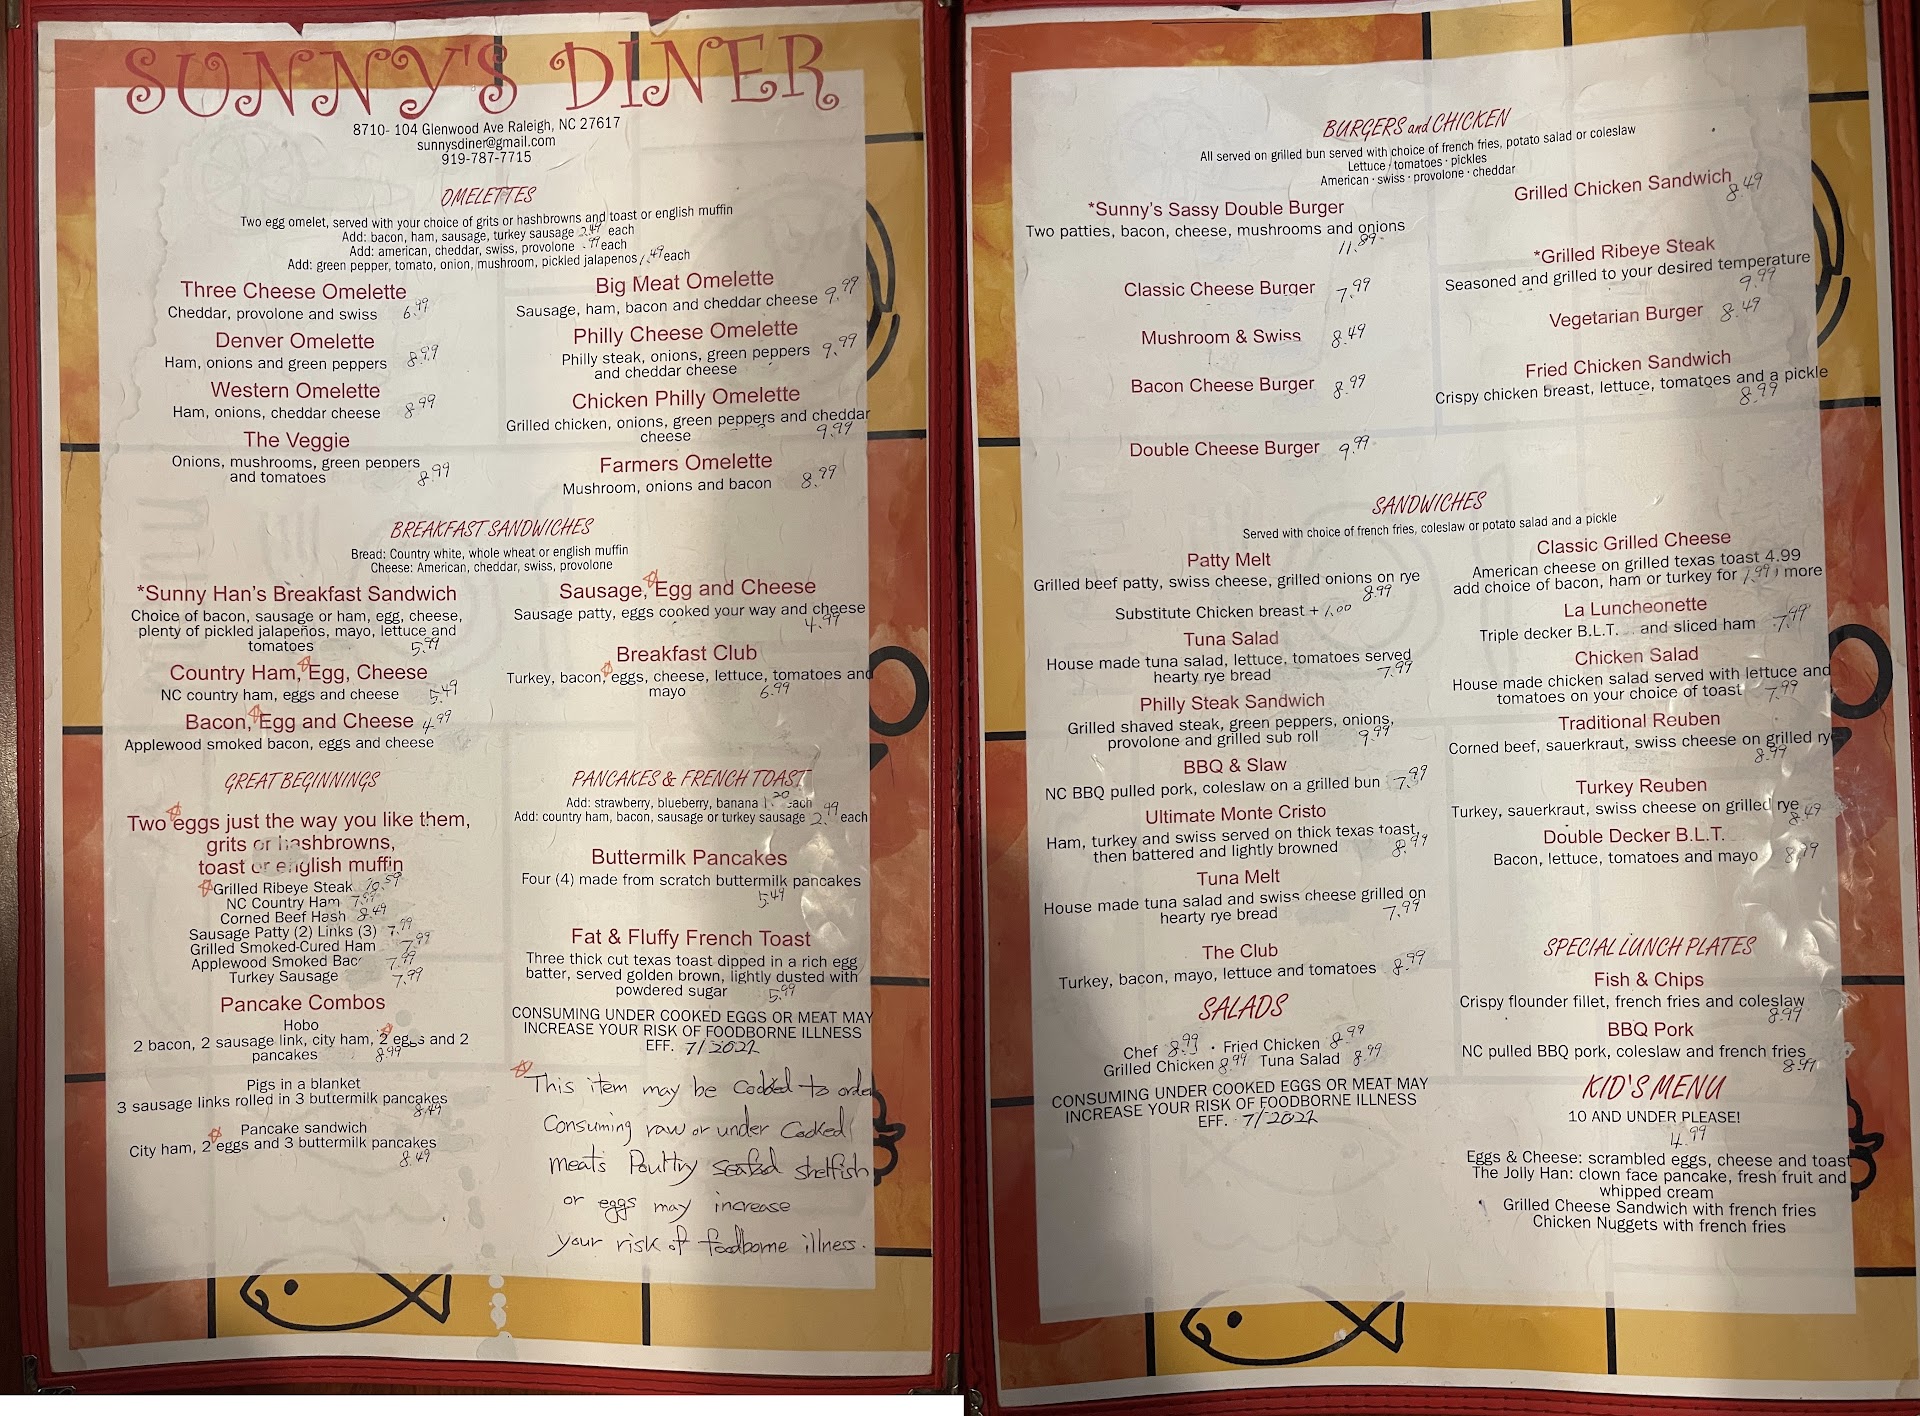 SUNNY'S DINER
8710- 104 Glenwood Ave Raleigh, NC 27617
sunnysdiner@gmail.com
919-787-7715
OMELETTES
Two egg omelet, served with your choice of grits or hashbrowns and toast or english muffin
Add: bacon, ham, sausage, turkey sausage 2.49 each
Add: american, cheddar, swiss, provolone .99 each
Add: green pepper, tomato, onion, mushroom, pickled jalapenos 1.49 each
Three Cheese Omelette
Cheddar, provolone and swiss 6.99
Denver Omelette
Ham, onions and green peppers 8.99
Western Omelette
Ham, onions, cheddar cheese 8.99
The Veggie
Onions, mushrooms, green peppers
and tomatoes 8.99
Big Meat Omelette
Sausage, ham, bacon and cheddar cheese 9.99
Philly Cheese Omelette
Philly steak, onions, green peppers 9.99
and cheddar cheese
Chicken Philly Omelette
Grilled chicken, onions, green peppers and cheddar
cheese 9.99
Farmers Omelette
Mushroom, onions and bacon 8.99
BREAKFAST SANDWICHES
Bread: Country white, whole wheat or english muffin
Cheese: American, cheddar, swiss, provolone
*Sunny Han's Breakfast Sandwich
Choice of bacon, sausage or ham, egg, cheese,
plenty of pickled jalapeños, mayo, lettuce and
tomatoes 5.99
Country Ham, Egg, Cheese
NC country ham, eggs and cheese 5.49
Bacon, Egg and Cheese 4.99
Applewood smoked bacon, eggs and cheese
Sausage, Egg and Cheese
Sausage patty, eggs cooked your way and cheese
4.99
Breakfast Club
Turkey, bacon, eggs, cheese, lettuce, tomatoes and
mayo 6.99
GREAT BEGINNINGS
Two eggs just the way you like them,
grits or hashbrowns,
toast or english muffin
Grilled Ribeye Steak 10.59
NC Country Ham 7.99
Corned Beef Hash 8.49
Sausage Patty (2) Links (3) 7.99
Grilled Smoked-Cured Ham 7.99
Applewood Smoked Bac 7.99
Turkey Sausage 7.99
Pancake Combos
Hobo
2 bacon, 2 sausage link, city ham, 2 eggs and 2
pancakes 8.99
Pigs in a blanket
3 sausage links rolled in 3 buttermilk pancakes
8.49
Pancake sandwich
City ham, 2 eggs and 3 buttermilk pancakes
8.49
PANCAKES & FRENCH TOAST
Add: strawberry, blueberry, banana 1.20 each
Add: country ham, bacon, sausage or turkey sausage 2.99 each
Buttermilk Pancakes
Four (4) made from scratch buttermilk pancakes
5.49
Fat & Fluffy French Toast
Three thick cut texas toast dipped in a rich egg
batter, served golden brown, lightly dusted with
powdered sugar 5.99
CONSUMING UNDER COOKED EGGS OR MEAT MAY
INCREASE YOUR RISK OF FOODBORNE ILLNESS
EFF. 7/2022
This item may be Cooked to order
Consuming raw or under Cooked
meats Poultry seafood shellfish
or eggs may increase
your risk of foodborne illness.
BURGERS and CHICKEN
All served on grilled bun served with choice of french fries, potato salad or coleslaw
Lettuce · tomatoes · pickles
American · swiss · provolone · cheddar
*Sunny's Sassy Double Burger
Two patties, bacon, cheese, mushrooms and onions
11.89
Classic Cheese Burger 7.99
Mushroom & Swiss 8.49
Bacon Cheese Burger 8.99
Double Cheese Burger 9.99
Grilled Chicken Sandwich
8.49
*Grilled Ribeye Steak
Seasoned and grilled to your desired temperature
9.99
Vegetarian Burger 8.49
Fried Chicken Sandwich
Crispy chicken breast, lettuce, tomatoes and a pickle
8.99
SANDWICHES
Served with choice of french fries, coleslaw or potato salad and a pickle
Patty Melt
Grilled beef patty, swiss cheese, grilled onions on rye
8.99
Substitute Chicken breast + 1.00
Tuna Salad
House made tuna salad, lettuce, tomatoes served
hearty rye bread 7.99
Philly Steak Sandwich
Grilled shaved steak, green peppers, onions,
provolone and grilled sub roll 9.99
BBQ & Slaw
NC BBQ pulled pork, coleslaw on a grilled bun 7.99
Ultimate Monte Cristo
Ham, turkey and swiss served on thick texas toast,
then battered and lightly browned 8.99
Tuna Melt
House made tuna salad and swiss cheese grilled on
hearty rye bread 7.99
The Club
Turkey, bacon, mayo, lettuce and tomatoes 8.99
Classic Grilled Cheese
American cheese on grilled texas toast 4.99
add choice of bacon, ham or turkey for more
La Luncheonette
Triple decker B.L.T. and sliced ham 7.99
Chicken Salad
House made chicken salad served with lettuce and
tomatoes on your choice of toast 7.99
Traditional Reuben
Corned beef, sauerkraut, swiss cheese on grilled ry
8.99
Turkey Reuben
Turkey, sauerkraut, swiss cheese on grilled rye
8.49
Double Decker B.L.T.
Bacon, lettuce, tomatoes and mayo 8.99
SALADS
Chef 8.99 · Fried Chicken 8.99
Grilled Chicken 8.99 Tuna Salad 8.99
CONSUMING UNDER COOKED EGGS OR MEAT MAY
INCREASE YOUR RISK OF FOODBORNE ILLNESS
EFF. 7/2022
SPECIAL LUNCH PLATES
Fish & Chips
Crispy flounder fillet, french fries and coleslaw
8.99
BBQ Pork
NC pulled BBQ pork, coleslaw and french fries
8.99
KID'S MENU
10 AND UNDER PLEASE!
4.99
Eggs & Cheese: scrambled eggs, cheese and toast
The Jolly Han: clown face pancake, fresh fruit and
whipped cream
Grilled Cheese Sandwich with french fries
Chicken Nuggets with french fries